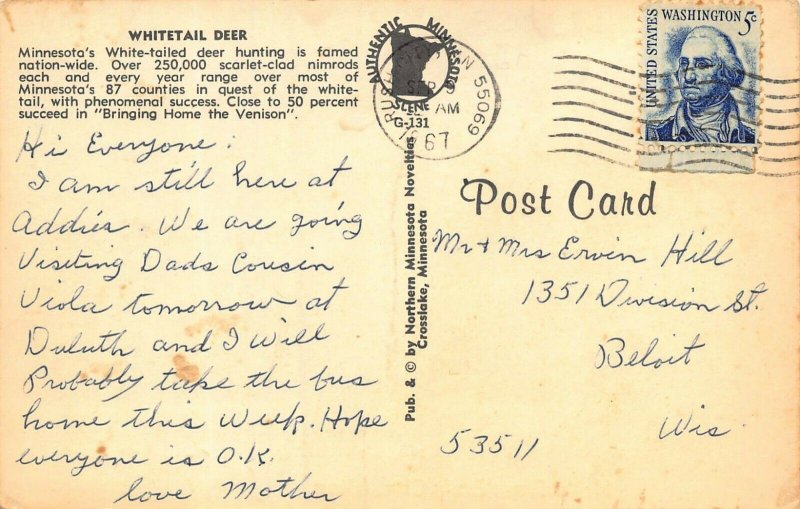 WHITETAIL DEER
Minnesota's White-tailed deer hunting is famed
nation-wide. Over 250,000 scarlet-clad nimrods
each and every year range over most of
Minnesota's 87 counties in quest of the white-
tail, with phenomenal success. Close to 50 percent
succeed in "Bringing Home the Venison".
Hi Everyone:
I am still here at
Addies. We are going
Visiting Dads Cousin
Viola tomorrow at
Duluth and I Will
Probably take the bus
home this Week. Hope
everyone is O.K.
love Mother
AUTHENTIC MINNESOTA
SCENE
G-131
55069
AM
1967
Pub. & © by Northern Minnesota Novelties
Crosslake, Minnesota
UNITED STATES
WASHINGTON 5c
Post Card
Mr + Mrs Ervin Hill
1351 Division St.
Beloit
Wis
53511